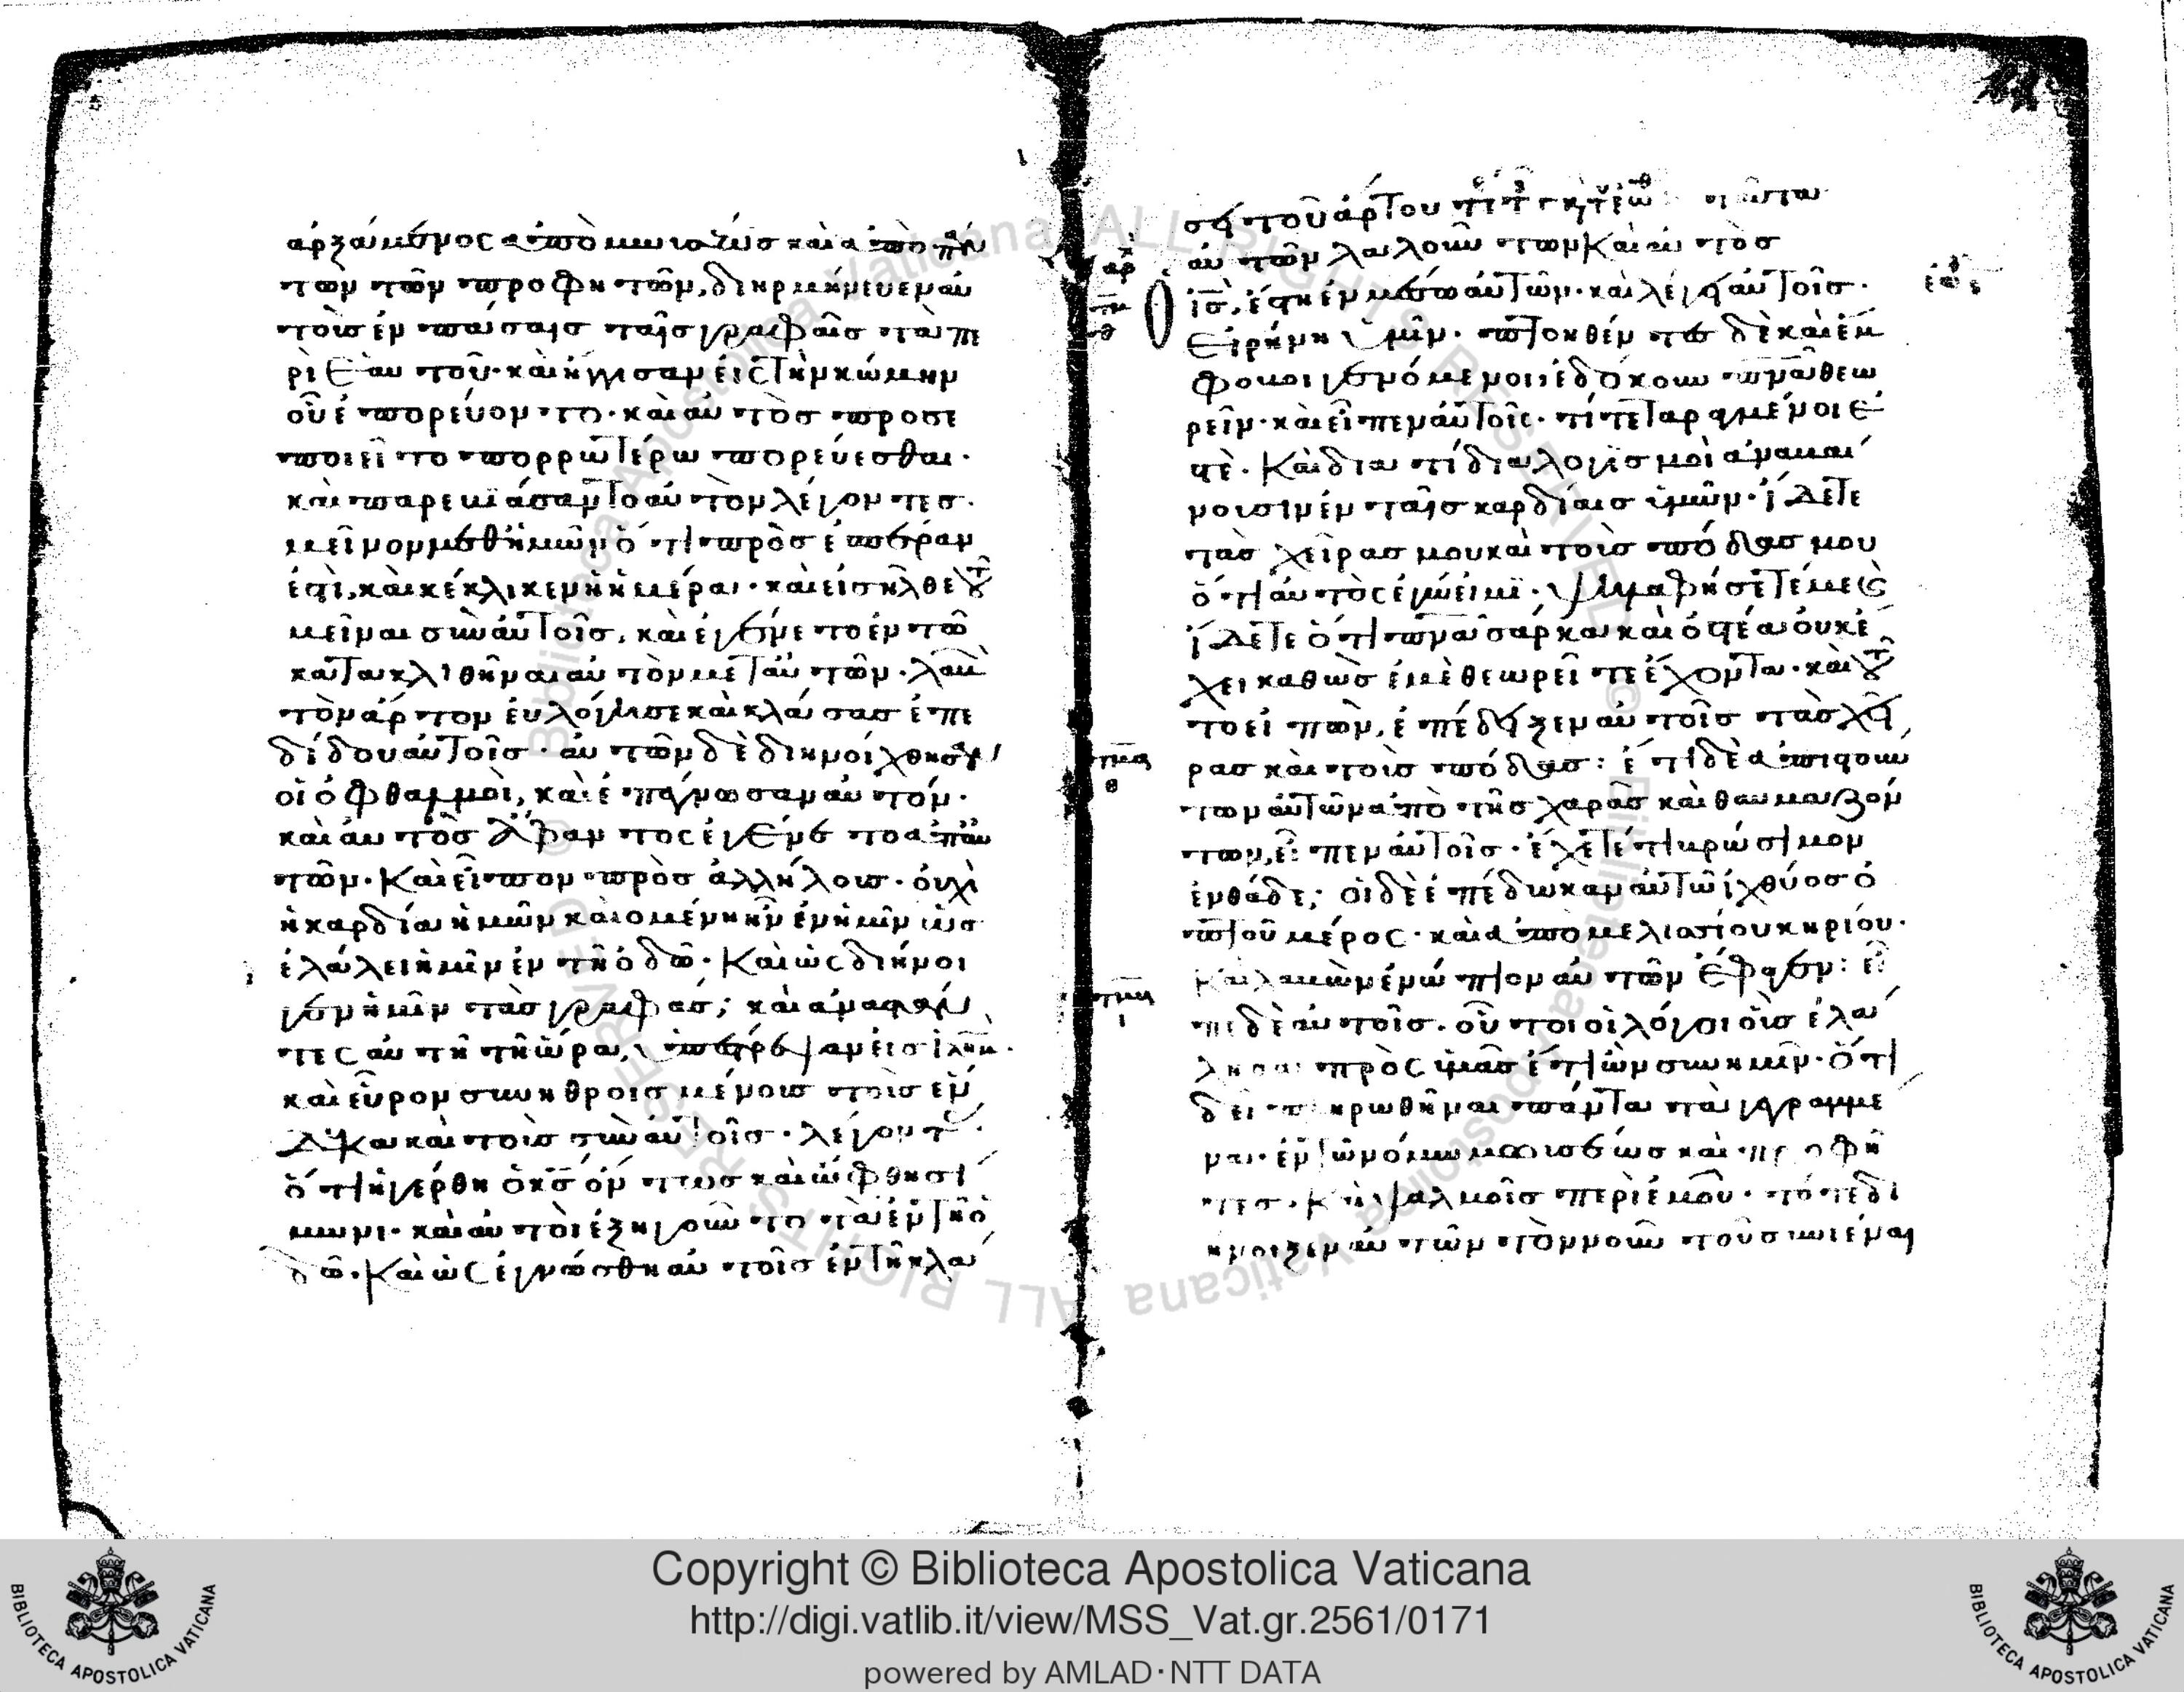 ἀρξάμενος ἀπὸ μωϊσέως καὶ ἀπὸ πάν
των τῶν προφητῶν, διηρμήνευεν αὐ
τοῖς ἐν πάσαις ταῖς γραφαῖς τὰ πε
ρὶ ἑαυτοῦ· καὶ ἤγγισαν εἰς τὴν κώμην
οὗ ἐπορεύοντο· καὶ αὐτὸς προσε
ποιεῖτο πορρωτέρω πορεύεσθαι·
καὶ παρεβιάσαντο αὐτὸν λέγοντες·
μεῖνον μεθ ἡμῶν ὅτι πρὸς ἑσπέραν
ἐστὶ, καὶ κέκλικεν ἡ ἡμέρα· καὶ εἰσῆλθε τοῦ
μεῖναι σὺν αὐτοῖς, καὶ ἐγένετο ἐν τῶ
κατακλιθῆναι αὐτὸν μετ αὐτῶν· λαβὼν
τὸν ἄρτον εὐλόγησε καὶ κλάσας ἐπε
δίδου αὐτοῖς· αὐτῶν δὲ διηνοίχθησαν
οἱ ὀφθαλμοὶ, καὶ ἐπέγνωσαν αὐτόν·
καὶ αὐτὸς ἄφαντος ἐγένετο ἀπ αὐ
τῶν· Καὶ εἶπον πρὸς ἀλλήλους· οὐχὶ
ἡ καρδία ἡμῶν καιομένη ἦν ἐν ἡμῖν ὡς
ἐλάλει ἡμῖν ἐν τῆ ὁδῶ· Καὶ ὡς διήνοι
γεν ἡμῖν τὰς γραφάς; καὶ ἀναστάν
τες αὐτῆ τῆ ὥρα, ὑπέστρεψαν εἰς ἱλημ·
καὶ εὗρον συνηθροισμένους τοὺς ἕν
δεκα καὶ τοὺς σὺν αὐτοῖς· λέγοντας·
ὅτι ἠγέρθη ὁ κς ὄντως καὶ ὤφθη σί
μωνι· καὶ αὐτοὶ ἐξηγοῦντο τὰ ἐν τῆ ὁ
δῶ· Καὶ ὡς ἐγνώσθη αὐτοῖς ἐν τῆ κλά
σει τοῦ ἄρτου
αὐτῶν λαλούντων Καὶ αὐτὸς
ις, ἔστη ἐν μέσω αὐτῶν· καὶ λέγει αὐτοῖς·
Εἰρήνη ὑμῖν· πτοηθέντες δὲ καὶ ἔμ
φοβοι γενόμενοι ἐδόκουν πνα θεω
ρεῖν· καὶ εἶπεν αὐτοῖς· τί τεταραγμένοι ἐ
στὲ· Καὶ διατί διαλογισμοὶ ἀναβαί
νουσιν ἐν ταῖς καρδίαις ὑμῶν· ἴδετε
τὰς χεῖρας μου καὶ τοὺς πόδας μου
ὅτι αὐτὸς ἐγώ εἰμι· ψηλαφήσετέ με καὶ
ἴδετε ὅτι πνα σάρκα καὶ ὀστέα οὐκ ἔ
χει καθὼς ἐμὲ θεωρεῖτε ἔχοντα· καὶ τοῦ
το εἰπὼν, ἐπέδειξεν αὐτοῖς τὰς χεῖ
ρας καὶ τοὺς πόδας: ἔτι δὲ ἀπιστούν
των αὐτῶν ἀπὸ τῆς χαρᾶς καὶ θαυμαζόν
των, εἶπεν αὐτοῖς· ἔχετέ τι βρώσιμον
ἐνθάδε; οἱ δὲ ἐπέδωκαν αὐτῶ ἰχθύος ὀ
πτοῦ μέρος· καὶ ἀπὸ μελισσίου κηρίου·
Καὶ λαβὼν ἐνώπιον αὐτῶν ἔφαγεν: εἶ
πε δὲ αὐτοῖς· οὗτοι οἱ λόγοι οὓς ἐλά
λησα πρὸς ὑμᾶς ἔτι ὢν σὺν ὑμῖν· ὅτι
δεῖ πληρωθῆναι πάντα τὰ γεγραμμέ
να· ἐν τῶ νόμω μωϊσέως καὶ προφή
ταις· Καὶ ψαλμοῖς περὶ ἐμοῦ· τότε δι
ήνοιξεν αὐτῶν τὸν νοῦν τοῦ συνιέναι
Copyright © Biblioteca Apostolica Vaticana
http://digi.vatlib.it/view/MSS_Vat.gr.2561/0171
powered by AMLAD·NTT DATA
BIBLIOTECA APOSTOLICA VATICANA
BIBLIOTECA APOSTOLICA VATICANA